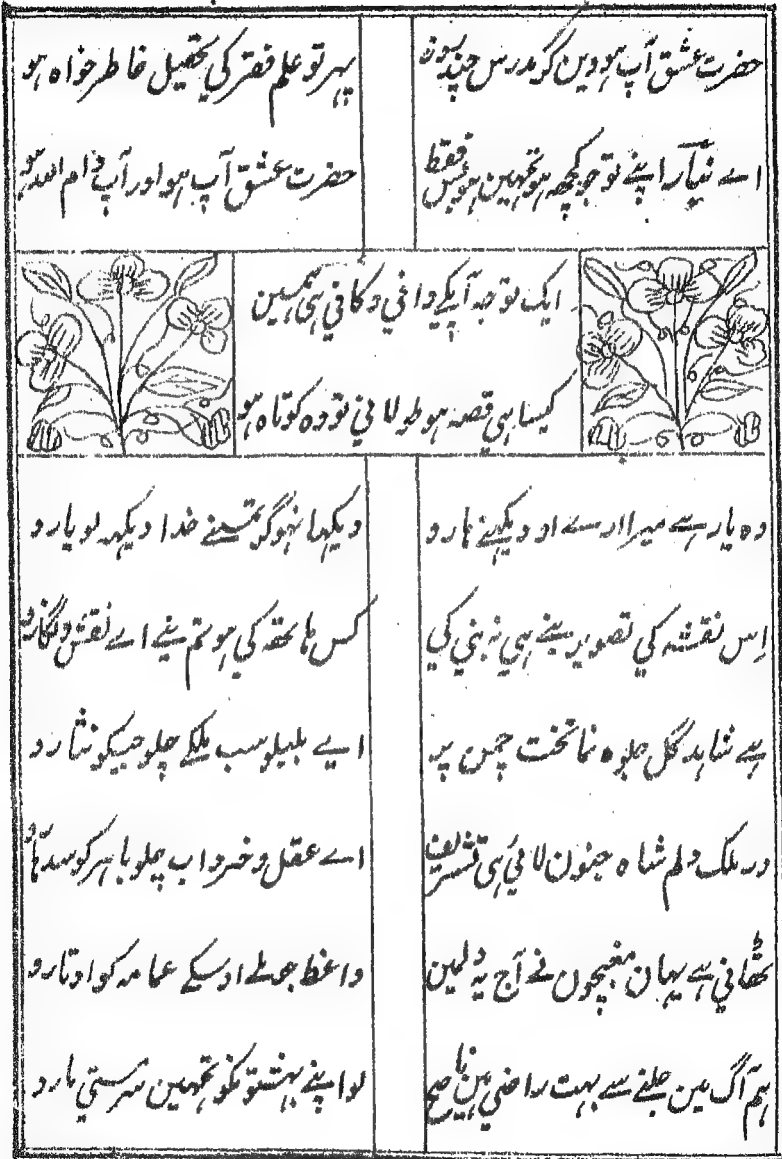 حضرت عشق آپ ہو دین گو مدرس چند روز
پہر تو علم فقر کی تحصیل خاطر خواہ ہو
اے نیاز اپنے تو جو کچھہ ہو تمہین ہو بس فقط
حضرت عشق آپ ہو اور آپ دام اللہ ہو
ایک توجہ آپکی وافی و کافی ہی ہمین
کیسا ہی قصہ ہو طولانی تو وہ کوتاہ ہو
وہ یار ہے میرا ارے او دیکہنے ہارو
دیکہا نہو گر تمنے خدا دیکہہ لو یارو
اس نقشہ کی تصویر بنے ہی نہ بنی کی
کس ہاتھہ کی ہو تم بنے اے نقش و نگارو
ہے شاہد گل جلوہ نما تخت چمن پر
اے بلبلو سب ملکے چلو جیکو نثارو
در ملک دلم شاہ جنون لائی ہی تشریف
اے عقل و خرد اب چلو باہر کو سدہارو
ٹھانی ہے یہان مغبچون نے آج یہ دلمین
واعظ جو ملے اوسکے عمامہ کو اوتارو
ہم آگ مین جلنے سے بہت راضی ہین ناصح
لو اپنے بہشتو نکو تمہین سر ستی مارو